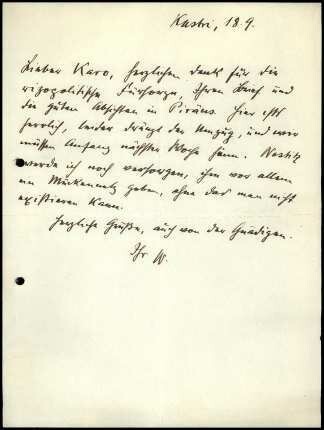 Kastri, 18.9.
Lieber Karo, herzlichen Dank für die
rizopolitische Fürsorge, Ihren Brief und
die guten Absichten in Piräus. Hier ists
herrlich, leider drängt der Umzug, und wir
müssen Anfang nächster Woche
werde ich noch versorgen, ihm vor allem
ein Mückennetz geben, ohne das man nicht
existieren kann.
Herzliche Grüße, auch von der Gnädigen.
Ihr W.